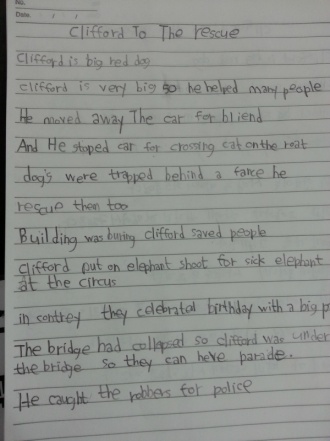 No.
Date.
Clifford To The rescue
Clifford is big red dog
clifford is very big so he helped many people
He moved away The car for bliend
And He stoped car for crossing cat on the roat
dog's were trapped behind a fance he
rescue then too
Building was buring clifford saved people
clifford put on elephant shoot for sick elephant
at the circus
in contrey they celebratal birthday with a big p
The bridge had collapsed so clifford was under
the bridge so they can heve parade.
He caught the robbers for police